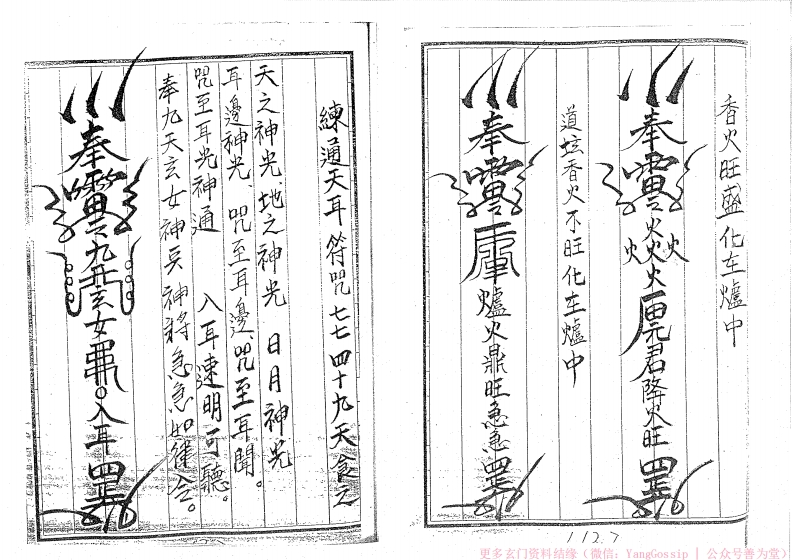 香火旺盛化在爐中
奉
火火火
火火
君降火旺
罡
道坛香火不旺化在爐中
奉
爐火鼎旺急急
罡
練通天耳符咒七七四十九天食之
天之神光、地之神光 日月神光
耳邊神光、咒至耳邊、咒至耳聞。
咒至耳光神通 入耳速明可聽。
奉九天玄女神兵神将急急如律令。
奉
九天玄女
入耳
罡
1127
更多玄门资料结缘（微信：YangGossip | 公众号善为堂）